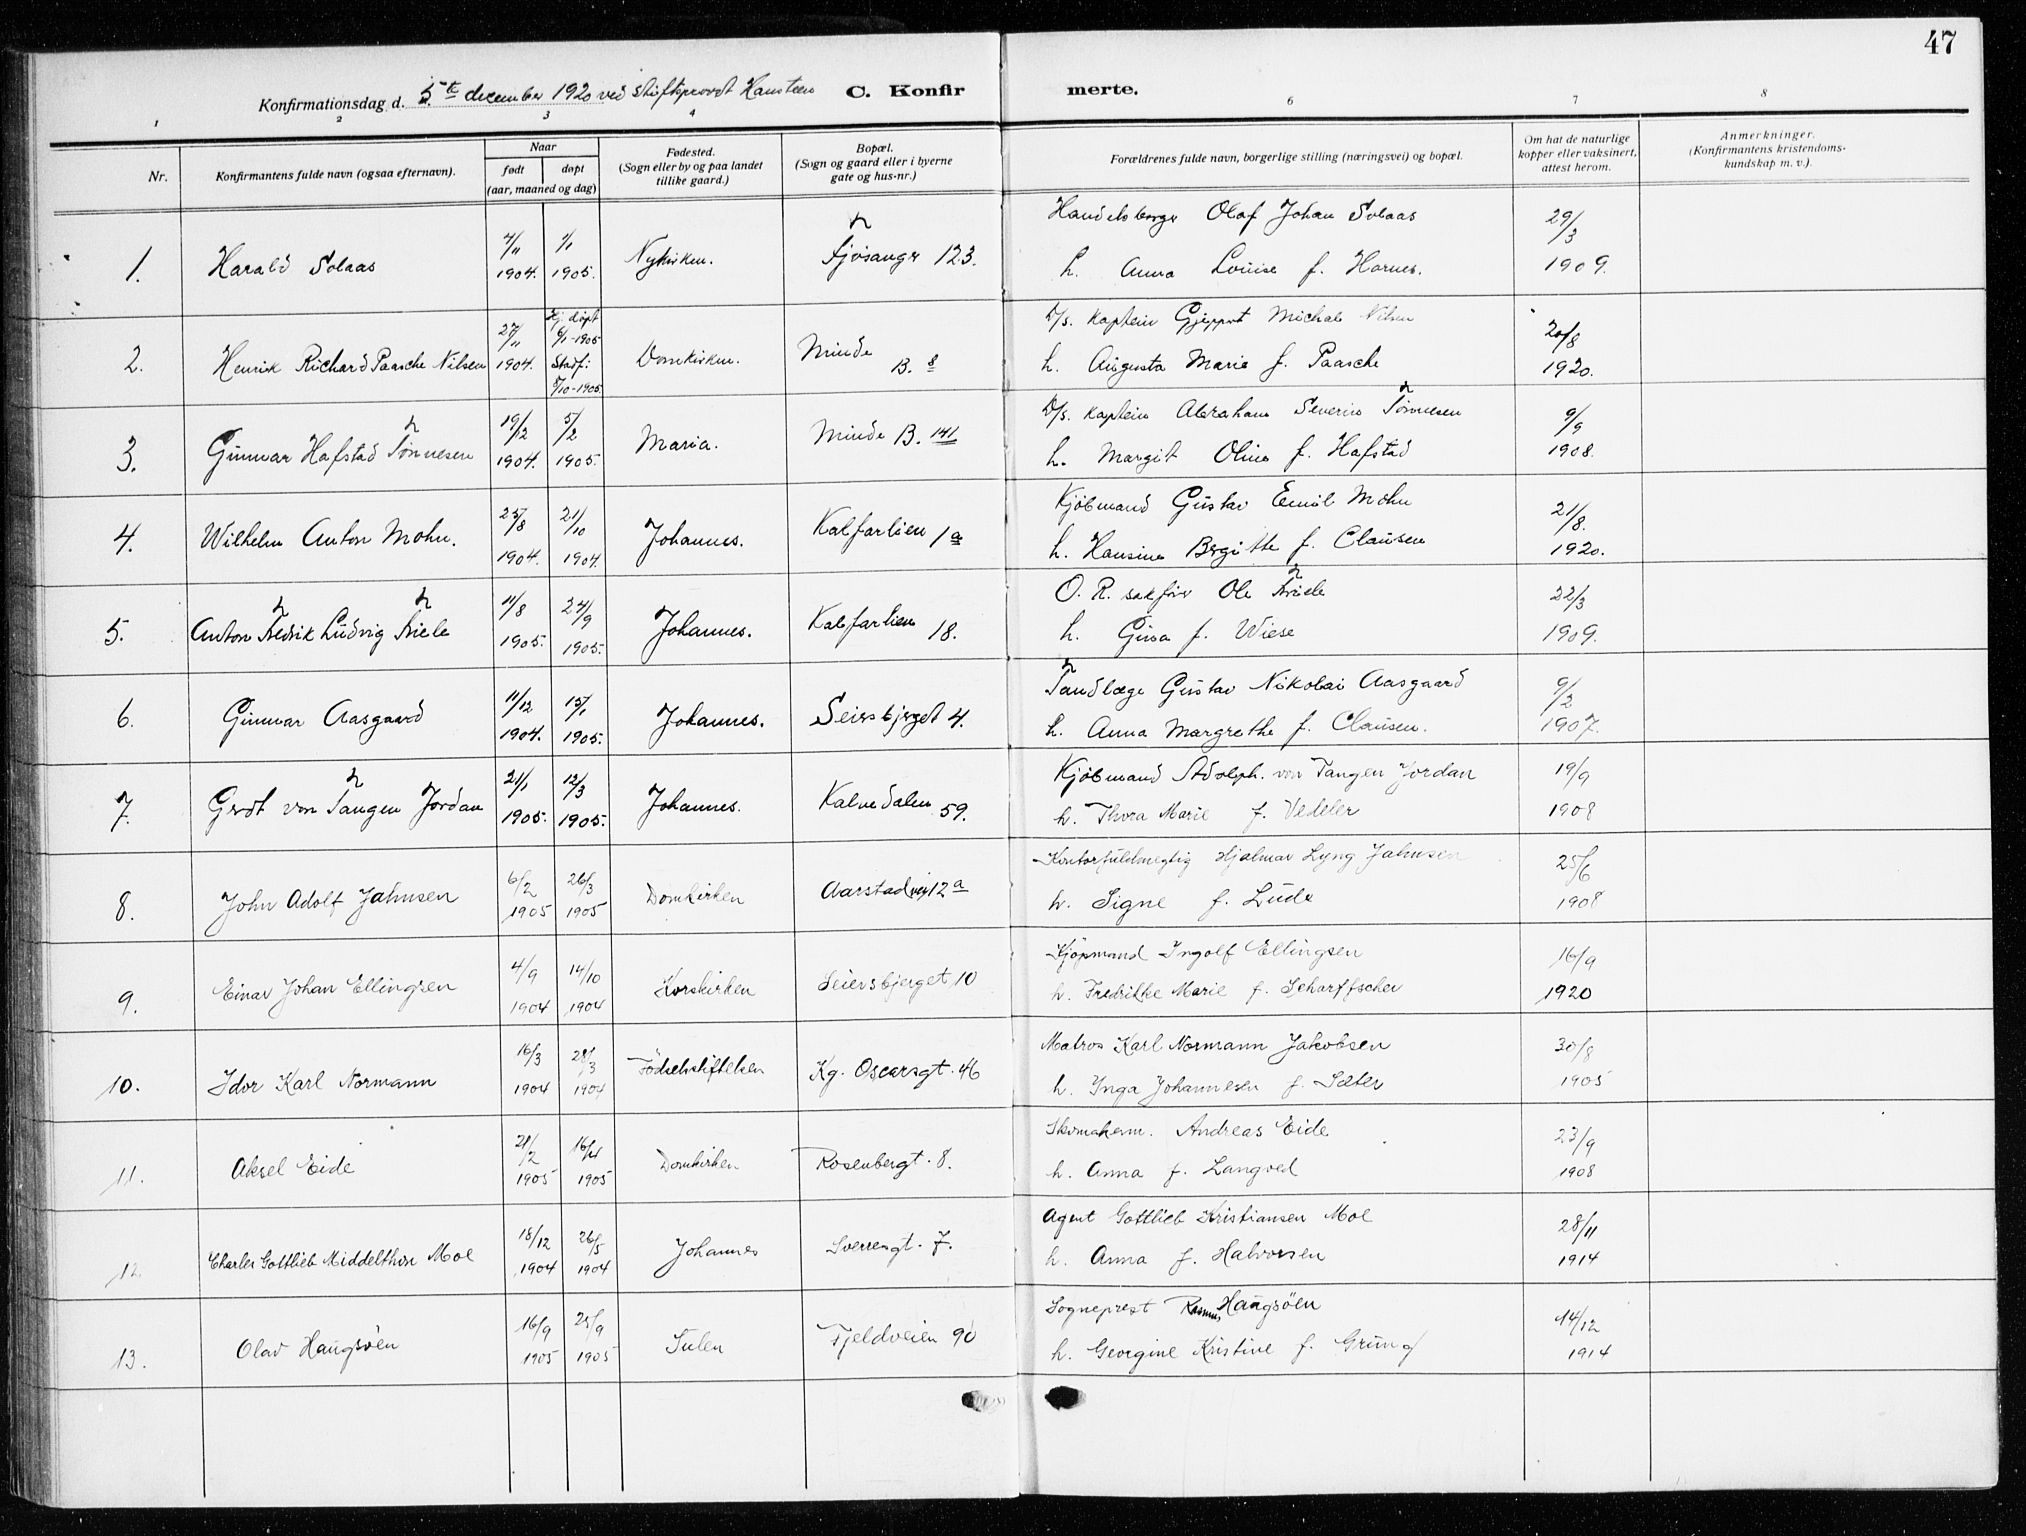 47
Konfirmationsdag d. 5te december 1920 ved stiftsprovst Hansteen C. Konfirmerte.
1 2 3 4 6 7 8
Nr.
Konfirmantens fulde navn (ogsaa efternavn).
Naar
født døpt
(aar, maaned og dag)
Fødested.
(Sogn eller by og paa landet
tillike gaard.)
Bopæl.
(Sogn og gaard eller i byerne
gate og hus-nr.)
Forældrenes fulde navn, borgerlige stilling (næringsvei) og bopæl.
Om hat de naturlige
kopper eller vaksinert,
attest herom.
Anmerkninger.
(Konfirmantens kristendoms-
kundskap m. v.).
1. Harald Solaas 4/11 1904. 1/1 1905. Nykirken. Fjøsangv 123.
Handelsborger Olaf Johan Solaas 29/3
h. Anna Louise f. Harnes. 1909.
2. Henrik Richard Paasche Nilsen 27/11 1904. Hj. døpt 6/1-1905 Stadf: 5/10-1905. Domkirken. Minde B. 8
D/s. kaptein Michal Nilsen 20/8
h. Augusta Marie f. Paasche 1920.
3. Gunnar Hafstad Tønnesen 19/12 1904. 5/2 1905. Maria. Minde B. 141
D/s. kaptein Abraham Severin Tønnesen 9/9
h. Margit Oline f. Hafstad 1908.
4. Wilhelm Anton Mohn. 25/8 1904. 21/10 1904. Johannes. Kalfarlien 1a
Kjøbmand Gustav Emil Mohn 21/8.
h. Hansine Bergitte f. Clausen 1920.
5. Anton Fredrik Ludvig Friele 11/8 1905. 24/9 1905. Johannes. Kalfarlien 18.
O. R. sakfør Ole Friele 22/3
h. Gina f. Wiese 1909.
6. Gunnar Aasgaard 11/12 1904. 15/1 1905. Johannes. Seiersbjerget 4.
Tandlæge Gustav Nikolai Aasgaard 9/2
h. Anna Margrethe f. Clausen. 1907.
7. Gerdt von Tangen Jordan 21/1 1905. 12/3 1905. Johannes. Kalvedalen 59.
Kjøbmand Adolph. von Tangen Jordan 19/9
h. Thora Marie f. Vedeler 1908
8. John Adolf Jahnsen 6/2 1905 26/3 1905 Domkirken Aarstadvei 12a
Kontorfuldmegtig Hjalmar Lyng Jahnsen 25/6
h. Signe f. Lude 1908
9. Einar Johan Ellingsen 4/9 1904 14/10 1904 Korskirken Seiersbjerget 10
Kjøpmand Ingolf Ellingsen 16/9
h. Fredrikke Marie f. Scharffscher 1920
10. Idor Karl Normann 16/3 1904 28/3 1904 Fødselsstiftelsen Kg. Oscarsgt. 46
Matros Karl Normann Jakobsen 30/8
h. Inga Johannesen f. Sæter 1905
11. Aksel Eide 21/2 1905 16/4 1905 Domkirken Rosenbergt. 8.
Skomakerm. Andreas Eide 23/9
h. Anna f. Langved 1908
12. Charles Gottlieb Middelthon Moe 18/12 1904 26/5 1904 Johannes Sverresgt. 7.
Agent Gottlieb Kristiansen Moe 28/11
h. Anna f. Halvorsen 1914
13. Olav Haugsøen 16/9 1905 25/9 1905 Sulen Fjeldveien 90
Sogneprest Rasmus Haugsøen 14/12
h. Georgine Kristine f. Grung 1914